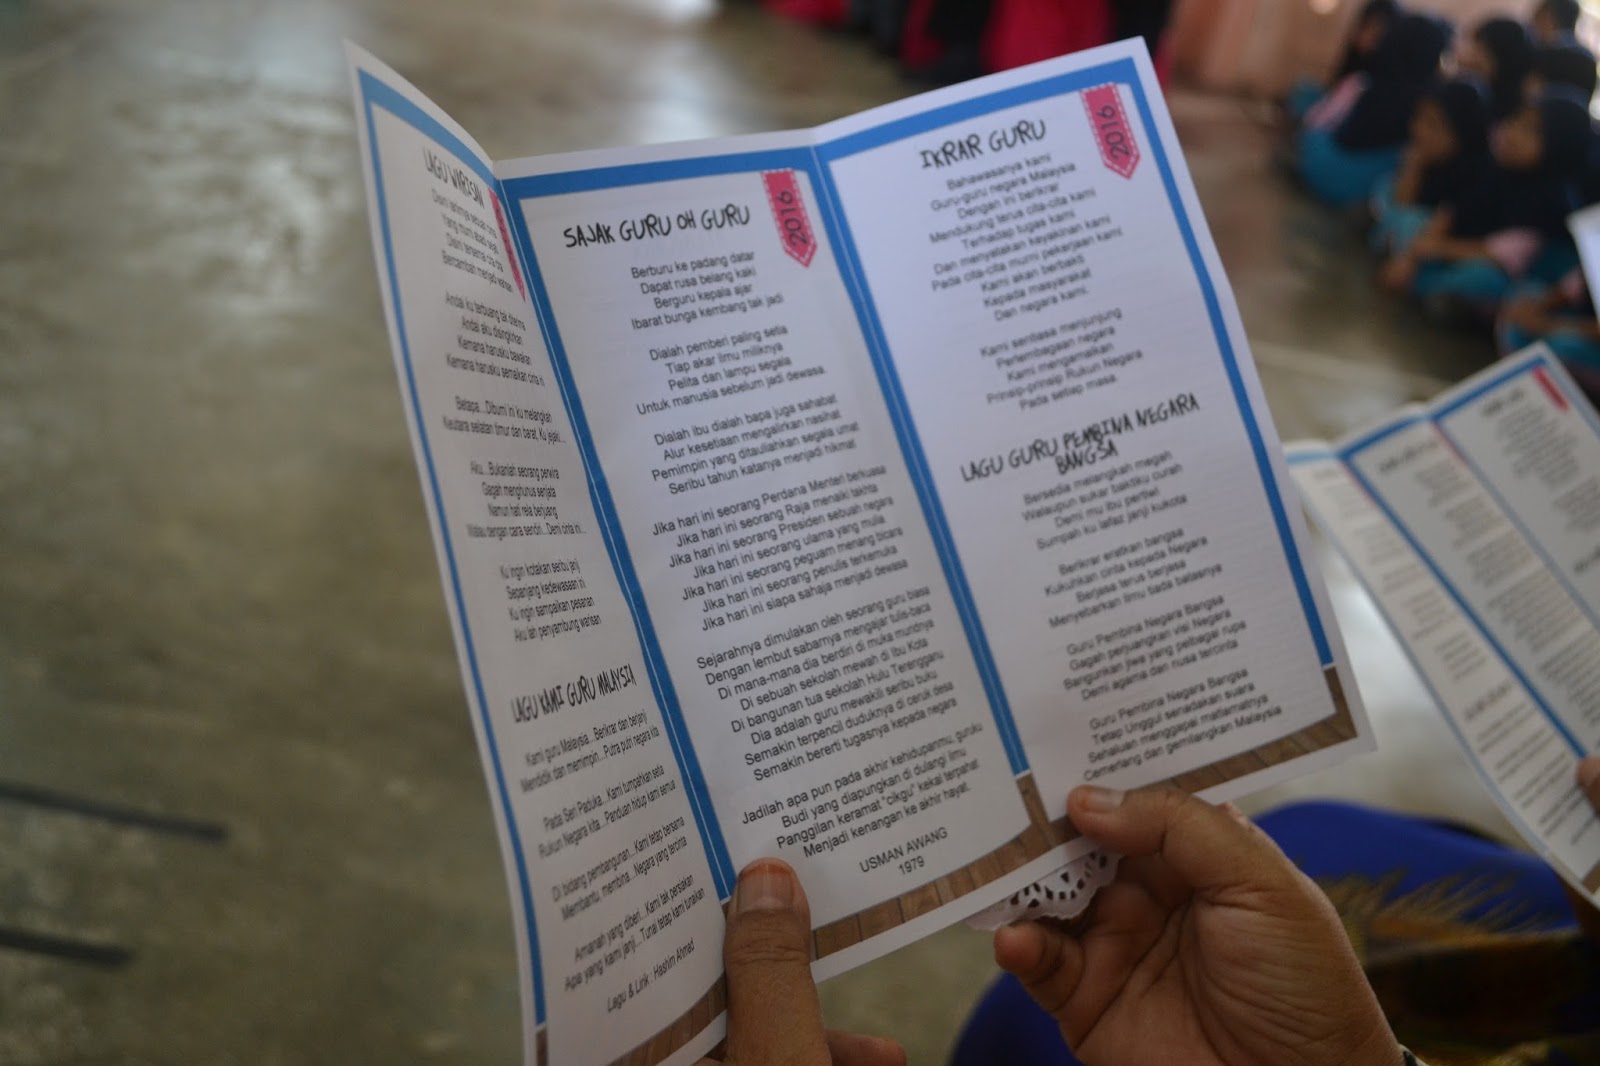 LAGU WARISAN
Disini lahirnya sebuah cinta
Yang murni abadi sejati
Disini tersemai cita cita
Bercambah menjadi warisan
Andai ku terbuang tak diterima
Andai aku disingkirkan
Kemana harusku bawakan
Kemana harusku semaikan cinta ni
Betapa...Dibumi ini ku melangkah
Keutara selatan timur dan barat, Ku jejaki...
Aku...Bukanlah seorang perwira
Gagah menghunus senjata
Namun hati rela berjuang
Walau dengan cara sendiri...Demi cinta ini...
Ku ingin kotakan seribu janji
Sepanjang kedewasaan ini
Ku ingin sampaikan pesanan
Aku lah penyambung warisan
LAGU KAMI GURU MALAYSIA
Kami guru Malaysia...Berikrar dan berjanji
Mendidik dan memimpin...Putra putri negara kita
Pada Seri Paduka...Kami tumpahkan setia
Rukun Negara kita...Panduan hidup kami semua
Di bidang pembangunan...Kami tetap bersama
Membantu, membina...Negara yang tercinta
Amanah yang diberi...Kami tak persiakan
Apa yang kami janji...Tunai tetap kami tunaikan
Lagu & Lirik : Hashim Ahmad
2016
SAJAK GURU OH GURU
Berburu ke padang datar
Dapat rusa belang kaki
Berguru kepala ajar
Ibarat bunga kembang tak jadi
Dialah pemberi paling setia
Tiap akar ilmu miliknya
Pelita dan lampu segala
Untuk manusia sebelum jadi dewasa.
Dialah ibu dialah bapa juga sahabat
Alur kesetiaan mengalirkan nasihat
Pemimpin yang ditauliahkan segala umat
Seribu tahun katanya menjadi hikmat
Jika hari ini seorang Perdana Menteri berkuasa
Jika hari ini seorang Raja menaiki takhta
Jika hari ini seorang Presiden sebuah negara
Jika hari ini seorang ulama yang mulia
Jika hari ini seorang peguam menang bicara
Jika hari ini seorang penulis terkemuka
Jika hari ini siapa sahaja menjadi dewasa
Sejarahnya dimulakan oleh seorang guru biasa
Dengan lembut sabarnya mengajar tulis-baca
Di mana-mana dia berdiri di muka muridnya
Di sebuah sekolah mewah di Ibu Kota
Di bangunan tua sekolah Hulu Terengganu
Dia adalah guru mewakili seribu buku
Semakin terpencil duduknya di ceruk desa
Semakin bererti tugasnya kepada negara
Jadilah apa pun pada akhir kehidupanmu, guruku
Budi yang diapungkan di dulangi ilmu
Panggilan keramat "cikgu" kekal terpahat
Menjadi kenangan ke akhir hayat.
USMAN AWANG
1979
2016
IKRAR GURU
Bahawasanya kami
Guru-guru negara Malaysia
Dengan ini berikrar
Mendukung terus cita-cita kami
Terhadap tugas kami
Dan menyatakan keyakinan kami
Pada cita-cita murni pekerjaan kami
Kami akan berbakti
Kepada masyarakat
Dan negara kami.
Kami sentiasa menjunjung
Perlembagaan negara
Kami mengamalkan
Prinsip-prinsip Rukun Negara
Pada setiap masa.
LAGU GURU PEMBINA NEGARA
BANGSA
Bersedia melangkah megah
Walaupun sukar baktiku curan
Demi mu ibu pertiwi
Sumpah ku lafaz janji kukota
Berikrar eratkan bangsa
Kukuhkan cinta kepada Negara
Berjasa terus berjasa
Menyebarkan ilmu tiada batasnya
Guru Pembina Negara Bangsa
Gagah perjuangkan visi Negara
Bangunkan jiwa yang pelbagai rupa
Demi agama dan nusa tercinta
Guru Pembina Negara Bangsa
Tetap Unggul senadakan suara
Sehaluan menggapai matlamatnya
Cemerlang dan gemilangkan Malaysia